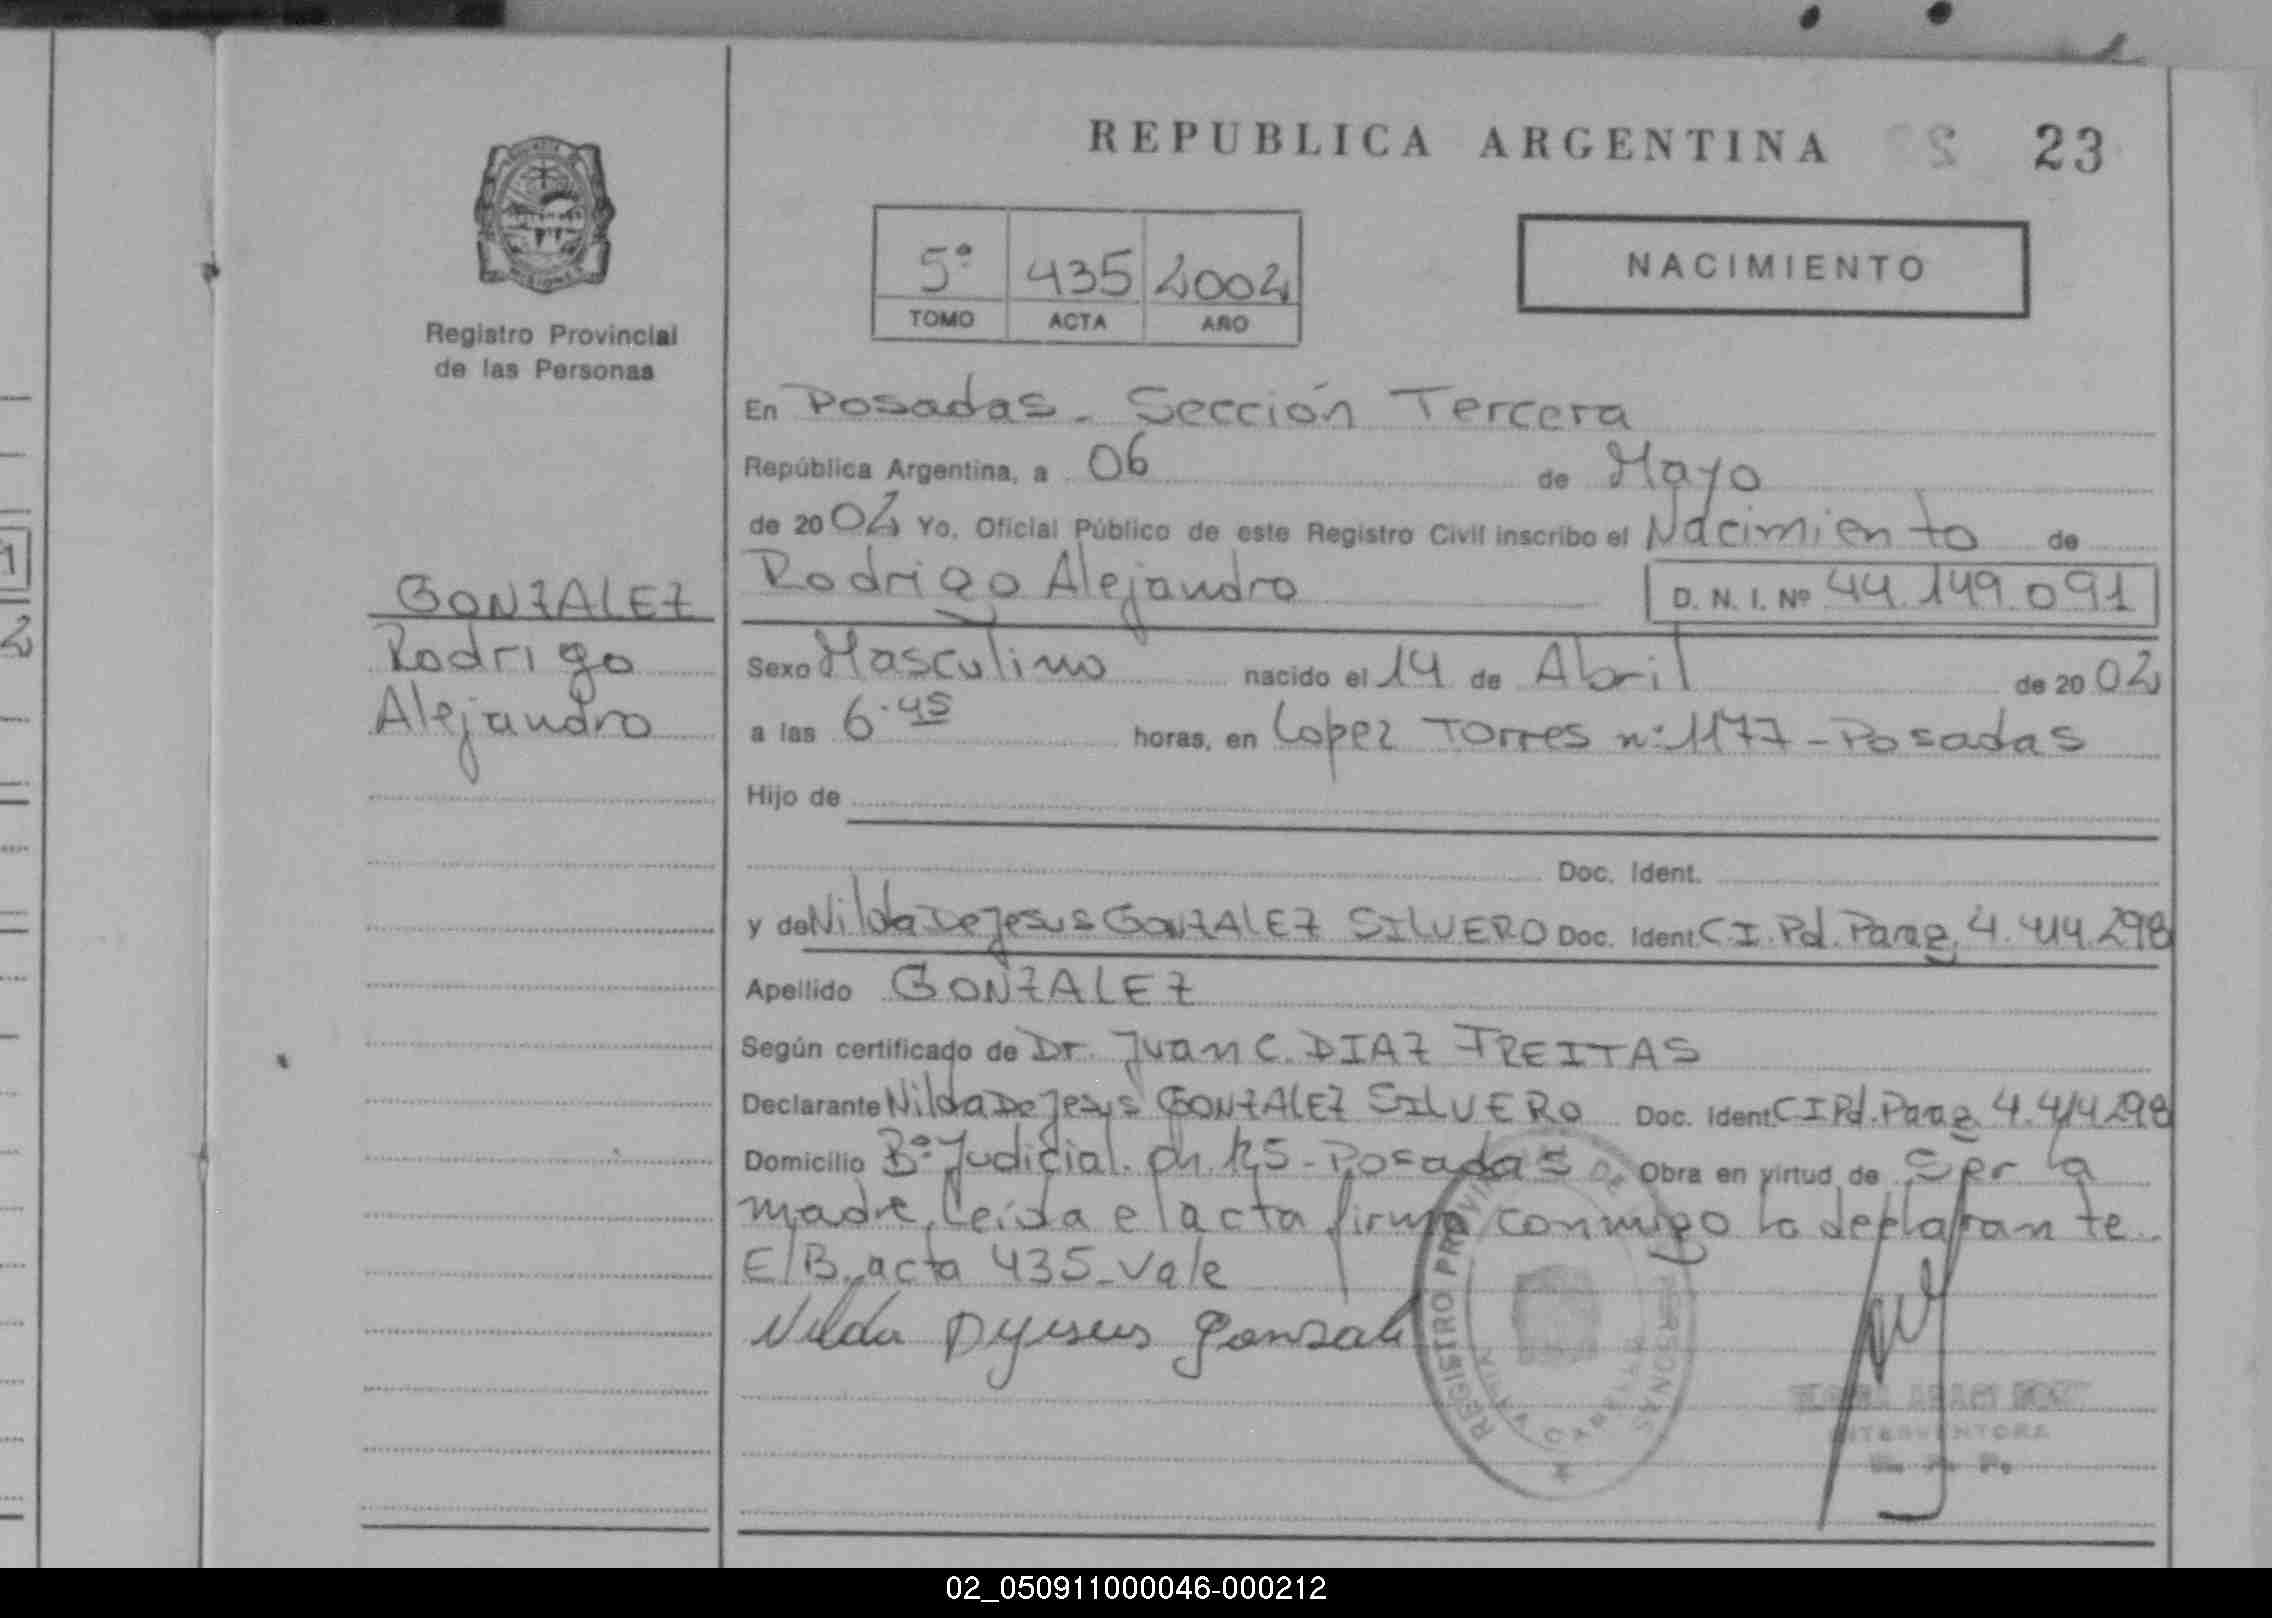 REPUBLICA ARGENTINA 23
Registro Provincial
de las Personas
5º 435 2002
TOMO ACTA AÑO
NACIMIENTO
GONZALEZ
Rodrigo
Alejandro
En Posadas - Sección Tercera
República Argentina, a 06 de Mayo
de 2002 Yo, Oficial Público de este Registro Civil inscribo el Nacimiento de
Rodrigo Alejandro D. N. I. Nº 44.149.091
Sexo Masculino nacido el 14 de Abril de 2002
a las 6.45 horas, en Lopez Torres nº 1177 - Posadas
Hijo de
Doc. Ident.
y de Nilda De Jesus GONZALEZ SILVERO Doc. Ident. C I. Pd. Parag. 4.414.298
Apellido GONZALEZ
Según certificado de Dr. Juan C. DIAZ FREITAS
Declarante Nilda De Jesus GONZALEZ SILVERO Doc. Ident. C I Pd. Parag. 4.414.298
Domicilio Bº Judicial. ch. 125 - Posadas Obra en virtud de ser la
madre, leída el acta firma conmigo la declarante.
E/B. acta 435 - Vale
Nilda Dejesus Gonzale
REGISTRO PROVINCIAL DE PERSONAS
CABECERA
INTERVENTORA
R. P. P.
02_050911000046-000212